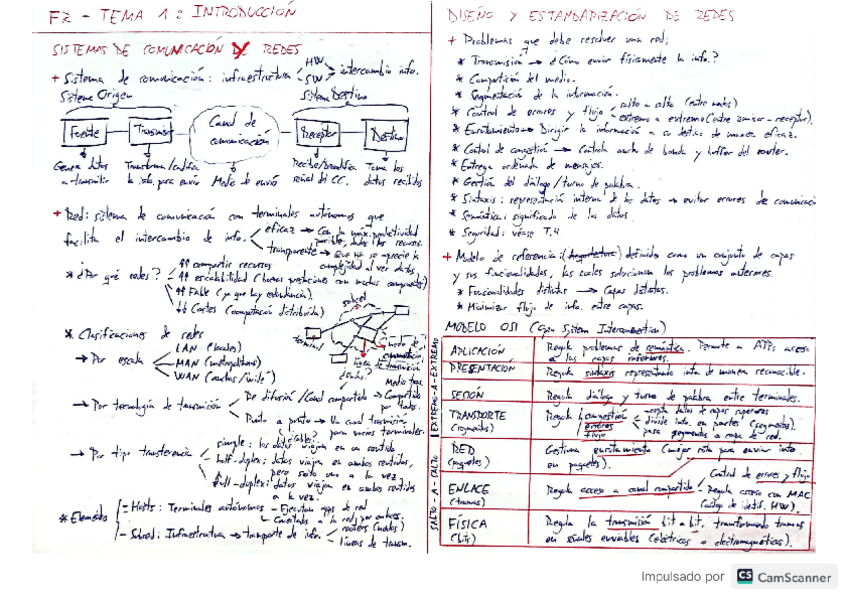 FR - TEMA 1: INTRODUCCIÓN
SISTEMAS DE COMUNICACIÓN Y REDES
+ Sistema de comunicación: infraestructura HW SW intercambio info.
Sistema Origen Sistema Destino
Fuente Transmisor Canal de comunicación Receptor Destino
Genera datos a transmitir
Transforma/codifica la info. para envío
Medio de envío
Recibe/Decodifica señal del CC.
Toma los datos recibidos
+ Red: sistema de comunicación con terminales autónomos que
facilita el intercambio de info.
eficaz → Con la máx. productividad posible, dados los recursos.
transparente → Que no se aprecie la complejidad al ver datos.
* ¿Por qué redes?
↑↑ compartir recursos
↑↑ escalabilidad (buenas prestaciones con muchos componentes)
↑↑ Fiable (ya que hay redundancia).
↓↓ Costes (computación distribuida)
subred
terminal
* Clasificaciones de redes
→ Por escala
LAN (locales)
MAN (metropolitana)
WAN
→ Por tecnología de transmisión
De difusión/Canal compartido → Compartido por todos.
Punto a punto → Un canal transmisión para varios terminales.
→ Por tipo transferencia
simple: los datos viajan en un sentido
half-duplex: datos viajan en ambos sentidos,
pero solo uno a la vez.
full-duplex: datos viajan en ambos sentidos
a la vez.
* Elementos
- Hosts: Terminales autónomos - Ejecutan apps de red
- Subred: Infraestructura → transporte de info. routers (nodos)
líneas de transm.
DISEÑO Y ESTANDARIZACIÓN DE REDES
+ Problemas que debe resolver una red:
* Transmisión → ¿Cómo enviar físicamente la info.?
* Compartición del medio.
* Segmentación de la información.
* Control de errores y flujo salto a salto (entre nodos)
extremo a extremo (entre emisor - receptor).
* Enrutamiento → Dirigir la información a su destino de manera eficaz.
* Control de congestión → Controla ancho de banda y buffer del router.
* Entrega ordenada de mensajes.
* Gestión del diálogo/turno de palabra.
* Sintaxis: representación interna de los datos → evitar errores de comunicació
* Semántica: significado de los datos.
* Seguridad: véase T.4.
+ Modelo de referencia: definido como un conjunto de capas
y sus funcionalidades, las cuales solucionan los problemas anteriores.
* Funcionalidades distintas → Capas distintas.
* Minimizar flujo de info. entre capas.
MODELO OSI (Open System Interconnection)
EXTREMO-A-EXTREMO
SALTO - A - SALTO
APLICACIÓN Regula problemas de semántica. Permite a APPs acceso
a las capas inferiores.
PRESENTACIÓN Regula sintaxis representando info de manera reconocible.
SESIÓN Regula diálogo y turno de palabra entre terminales.
TRANSPORTE (segmentos) Regula congestión errores flujo
- acepta datos de capas superiores
- divide info. en partes (segmentos)
- pasa segmentos a capa de red.
RED (paquetes) Gestiona enrutamiento (mejor ruta para enviar info.
en paquetes).
ENLACE (tramas) Regula acceso a canal compartido
Control de errores y flujo
- Regula acceso con MAC
(código de identif. HW).
FÍSICA (bits) Regula la transmisión bit a bit, transformando tramas
en señales enviables (eléctricas o electromagnéticas).
Impulsado por CS CamScanner